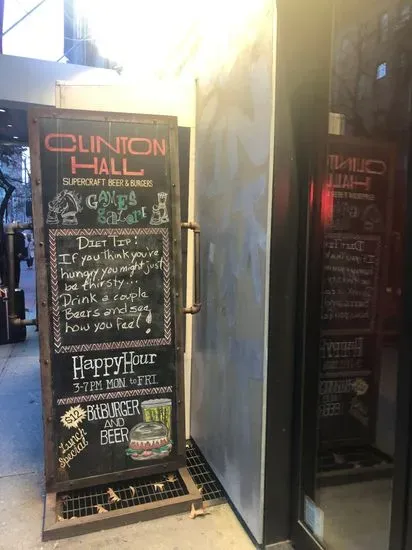 CLINTON
HALL
SUPERCRAFT BEER & BURGERS
GAMES
galore
DIET TIP!
If you think you're
hungry you might just
be thirsty...
Drink a couple
Beers and see
how you feel!
HAPPY HOUR
3-7PM MON to FRI.
$12
Lunch
Special
BitBURGER
AND
BEER